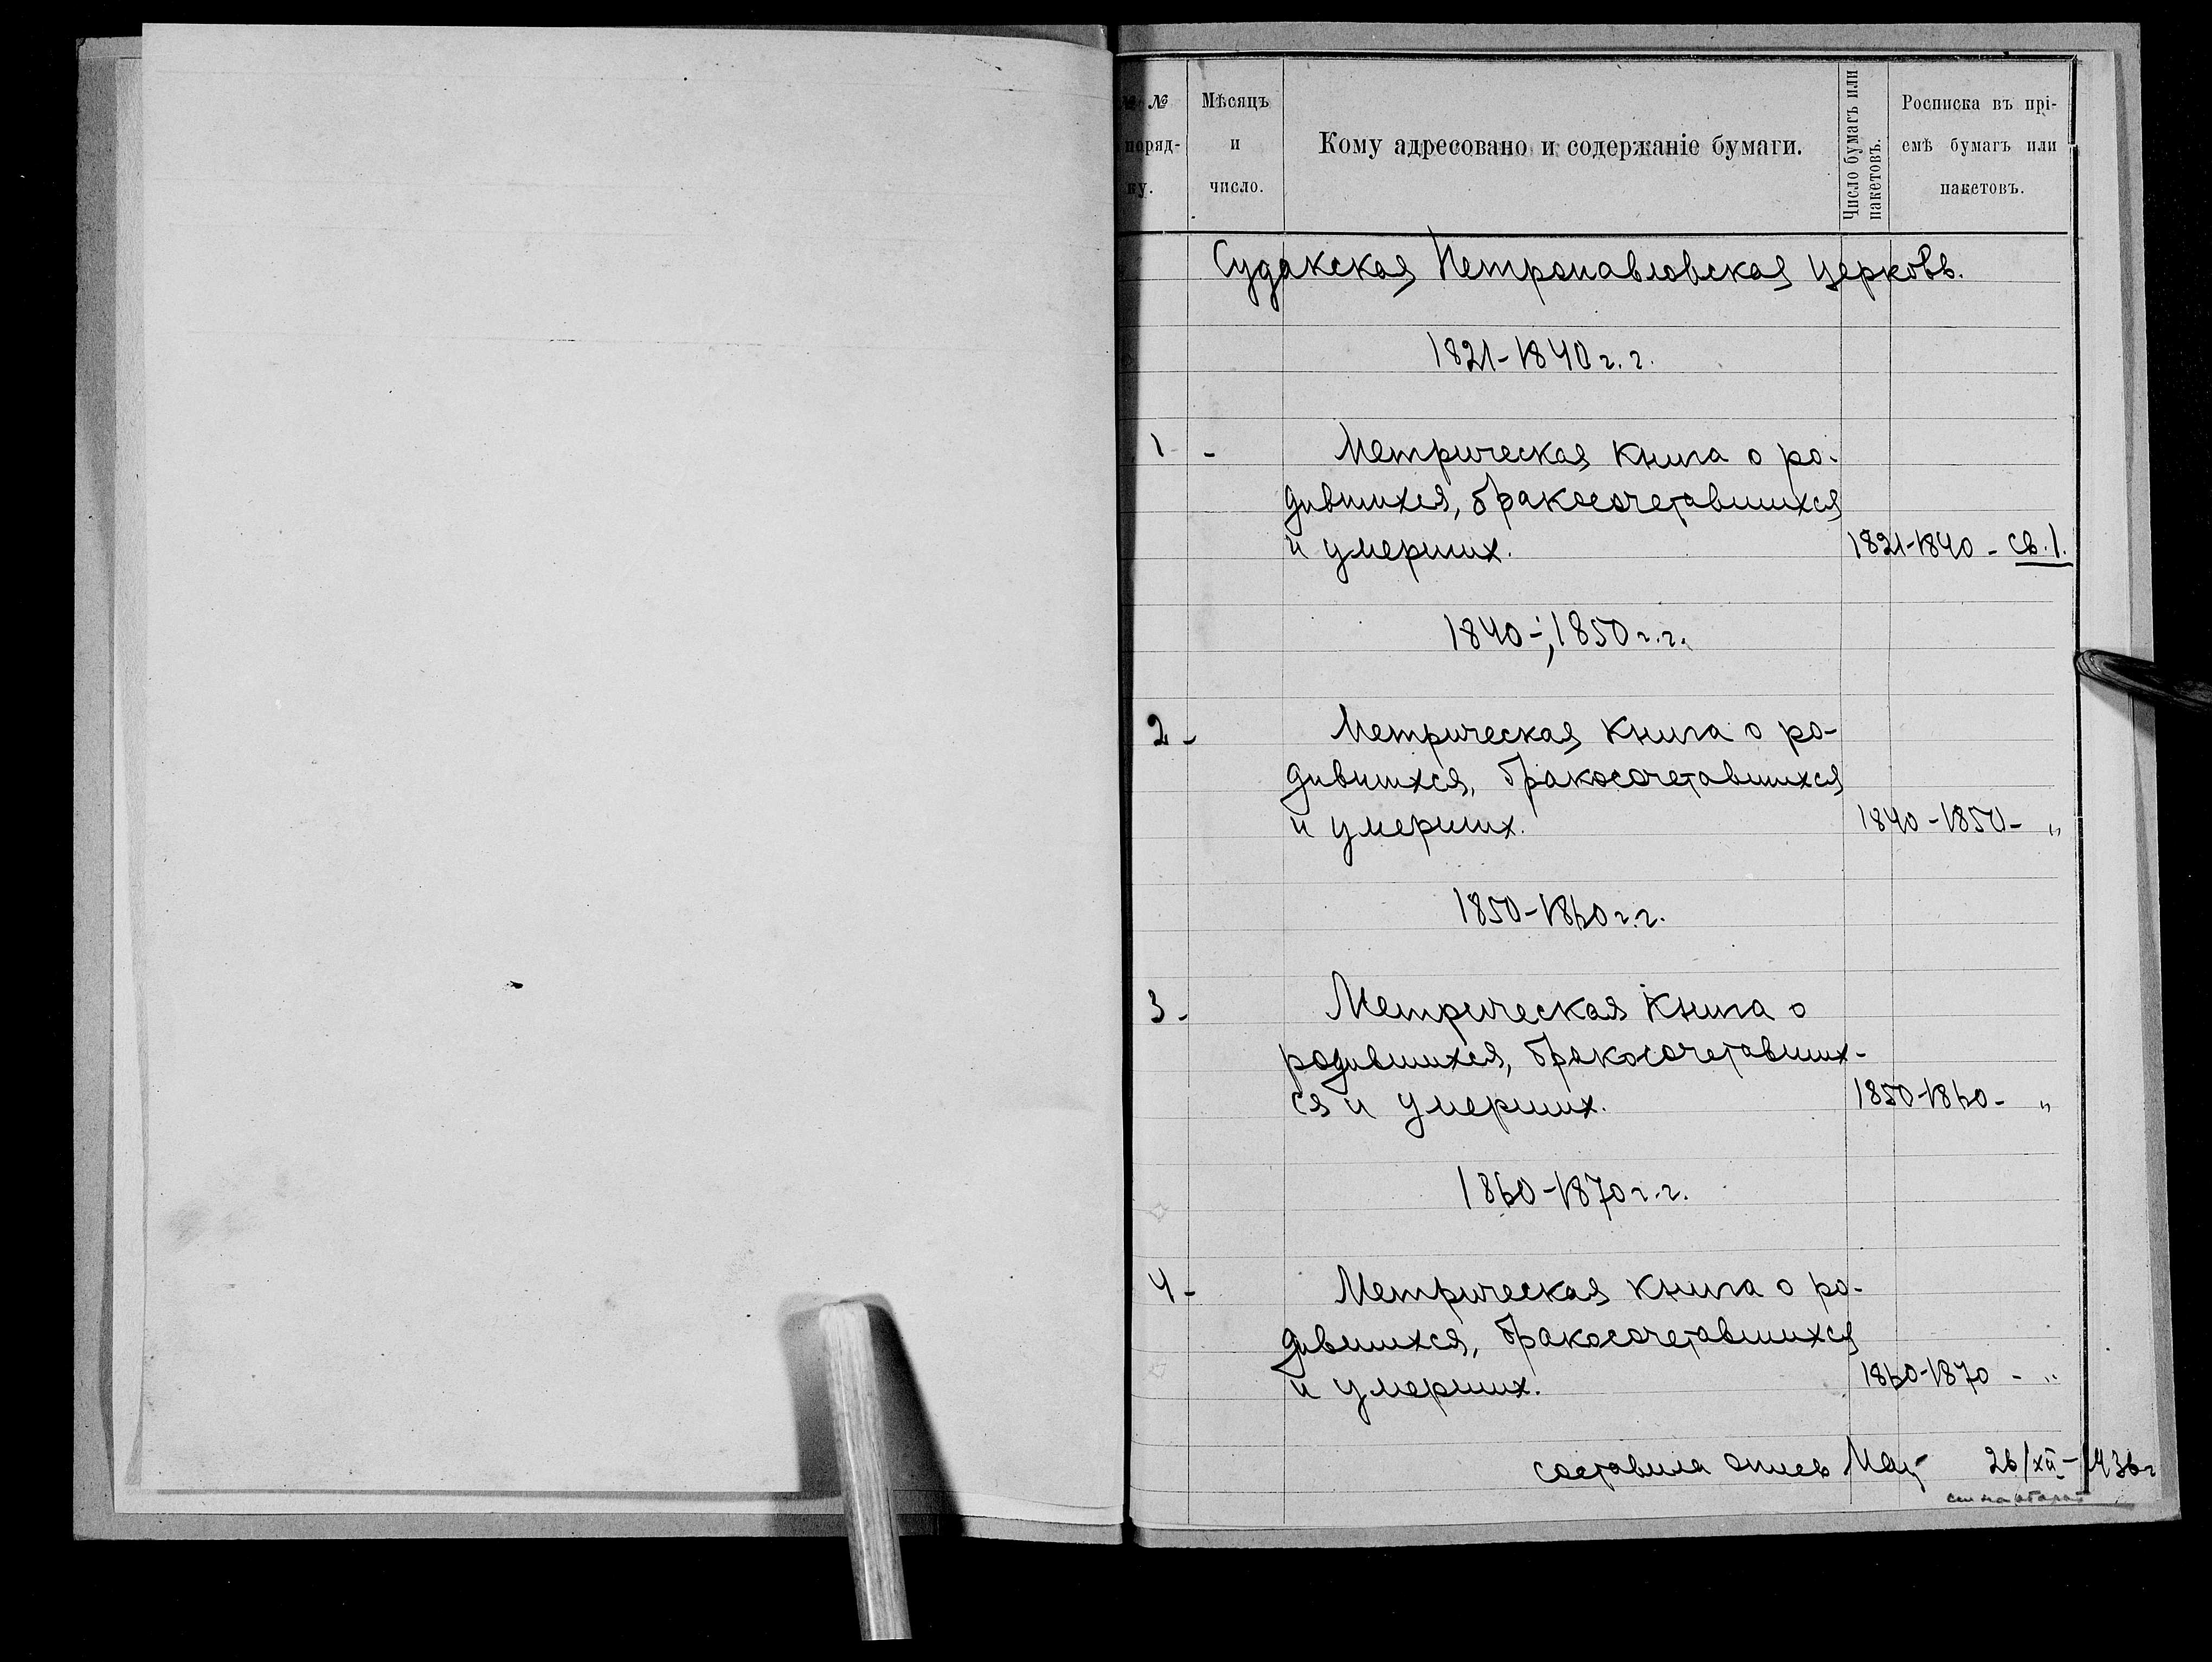 № № Мѣсяцъ Кому адресовано и содержаніе бумаги. Число бумагъ или Росписка въ прі-
поряд- и пакетовъ. емѣ бумагъ или
ку. число. пакетовъ.
Судакская Петропавловская церковь.
1821-1840 г. г.
1 - Метрическая книга о ро-
дившихся, бракосочетавшихся
и умерших. 1821-1840 - св. 1.
1840-; 1850 г. г.
2 - Метрическая книга о ро-
дившихся, бракосочетавшихся
и умерших. 1840-1850 - "
1850-1860 г. г.
3 - Метрическая книга о
родившихся, бракосочетавших-
ся и умерших. 1850-1860 - "
1860-1870 г. г.
4 - Метрическая книга о ро-
дившихся, бракосочетавшихся
и умерших. 1860-1870 - "
составила опись 26/XII-1936 г